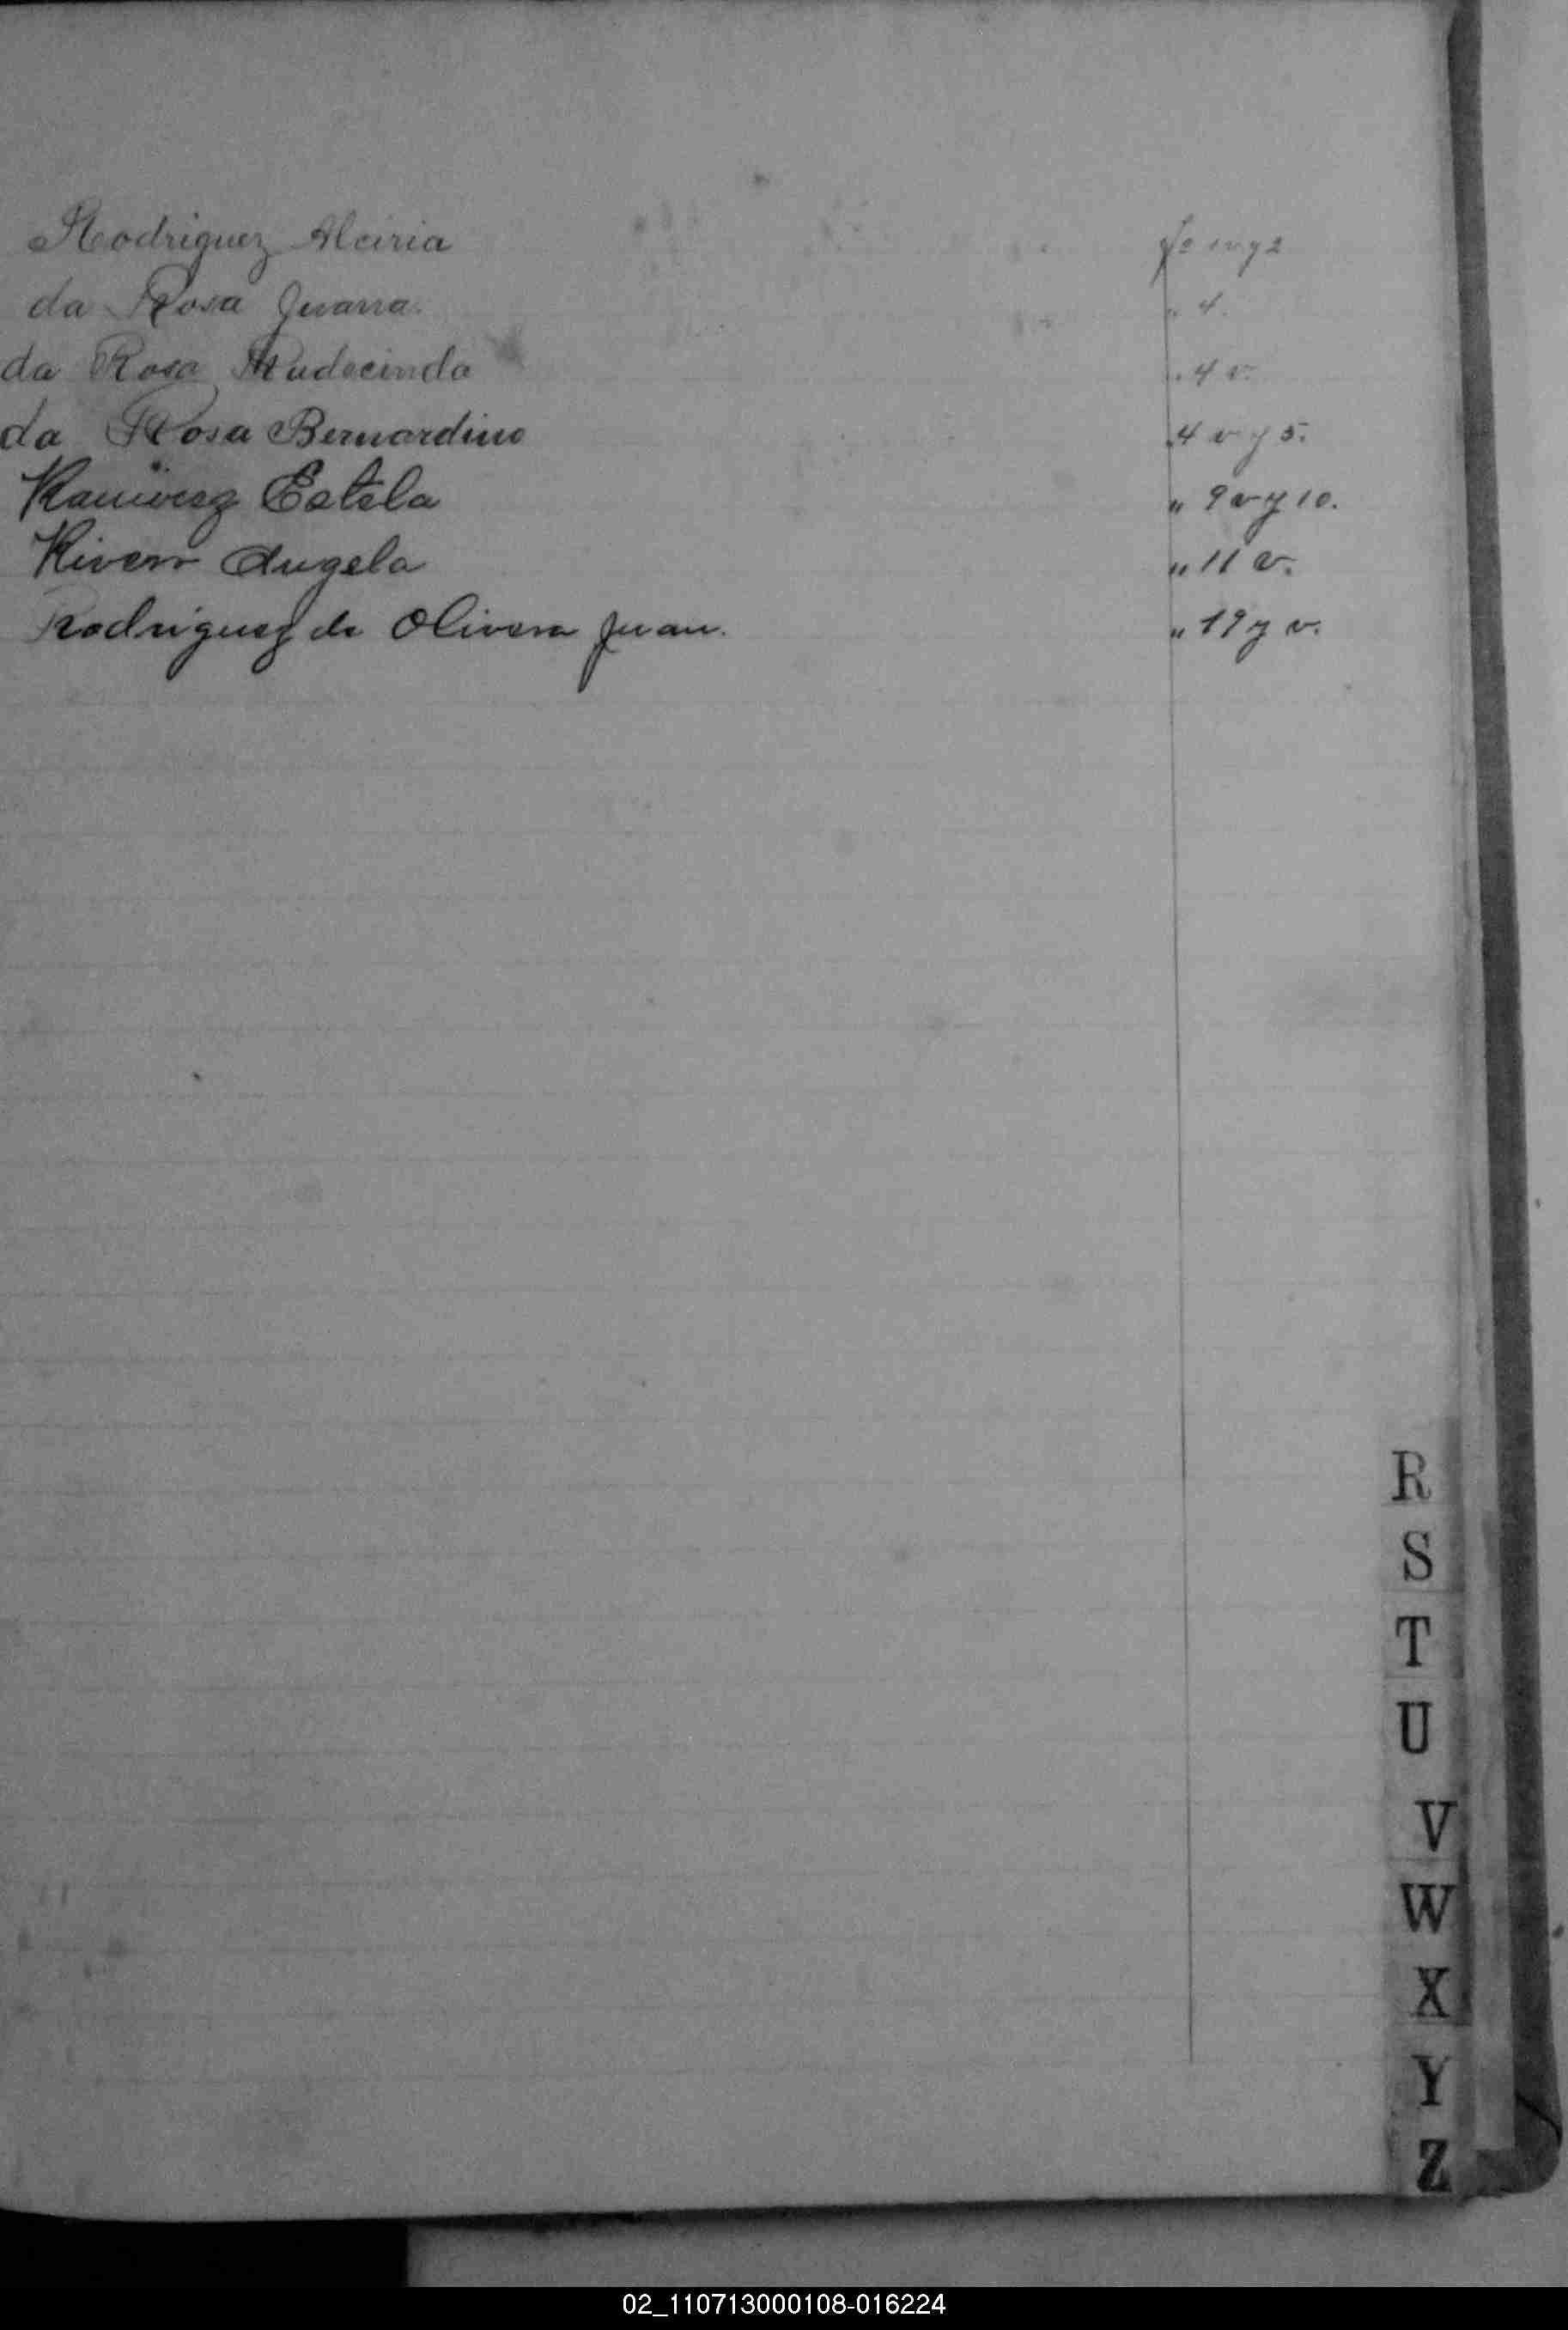 Rodriguez Alciria fo 1 v y 2
da Rosa Juana. " 4.
da Rosa Rudecinda " 4 v.
da Rosa Bernardino " 4 v y 5.
Ramirez Estela " 9 v y 10.
Rivero Angela " 11 v.
Rodriguez de Olivera Juan. " 19 y v.
R
S
T
U
V
W
X
Y
Z
02_110713000108-016224